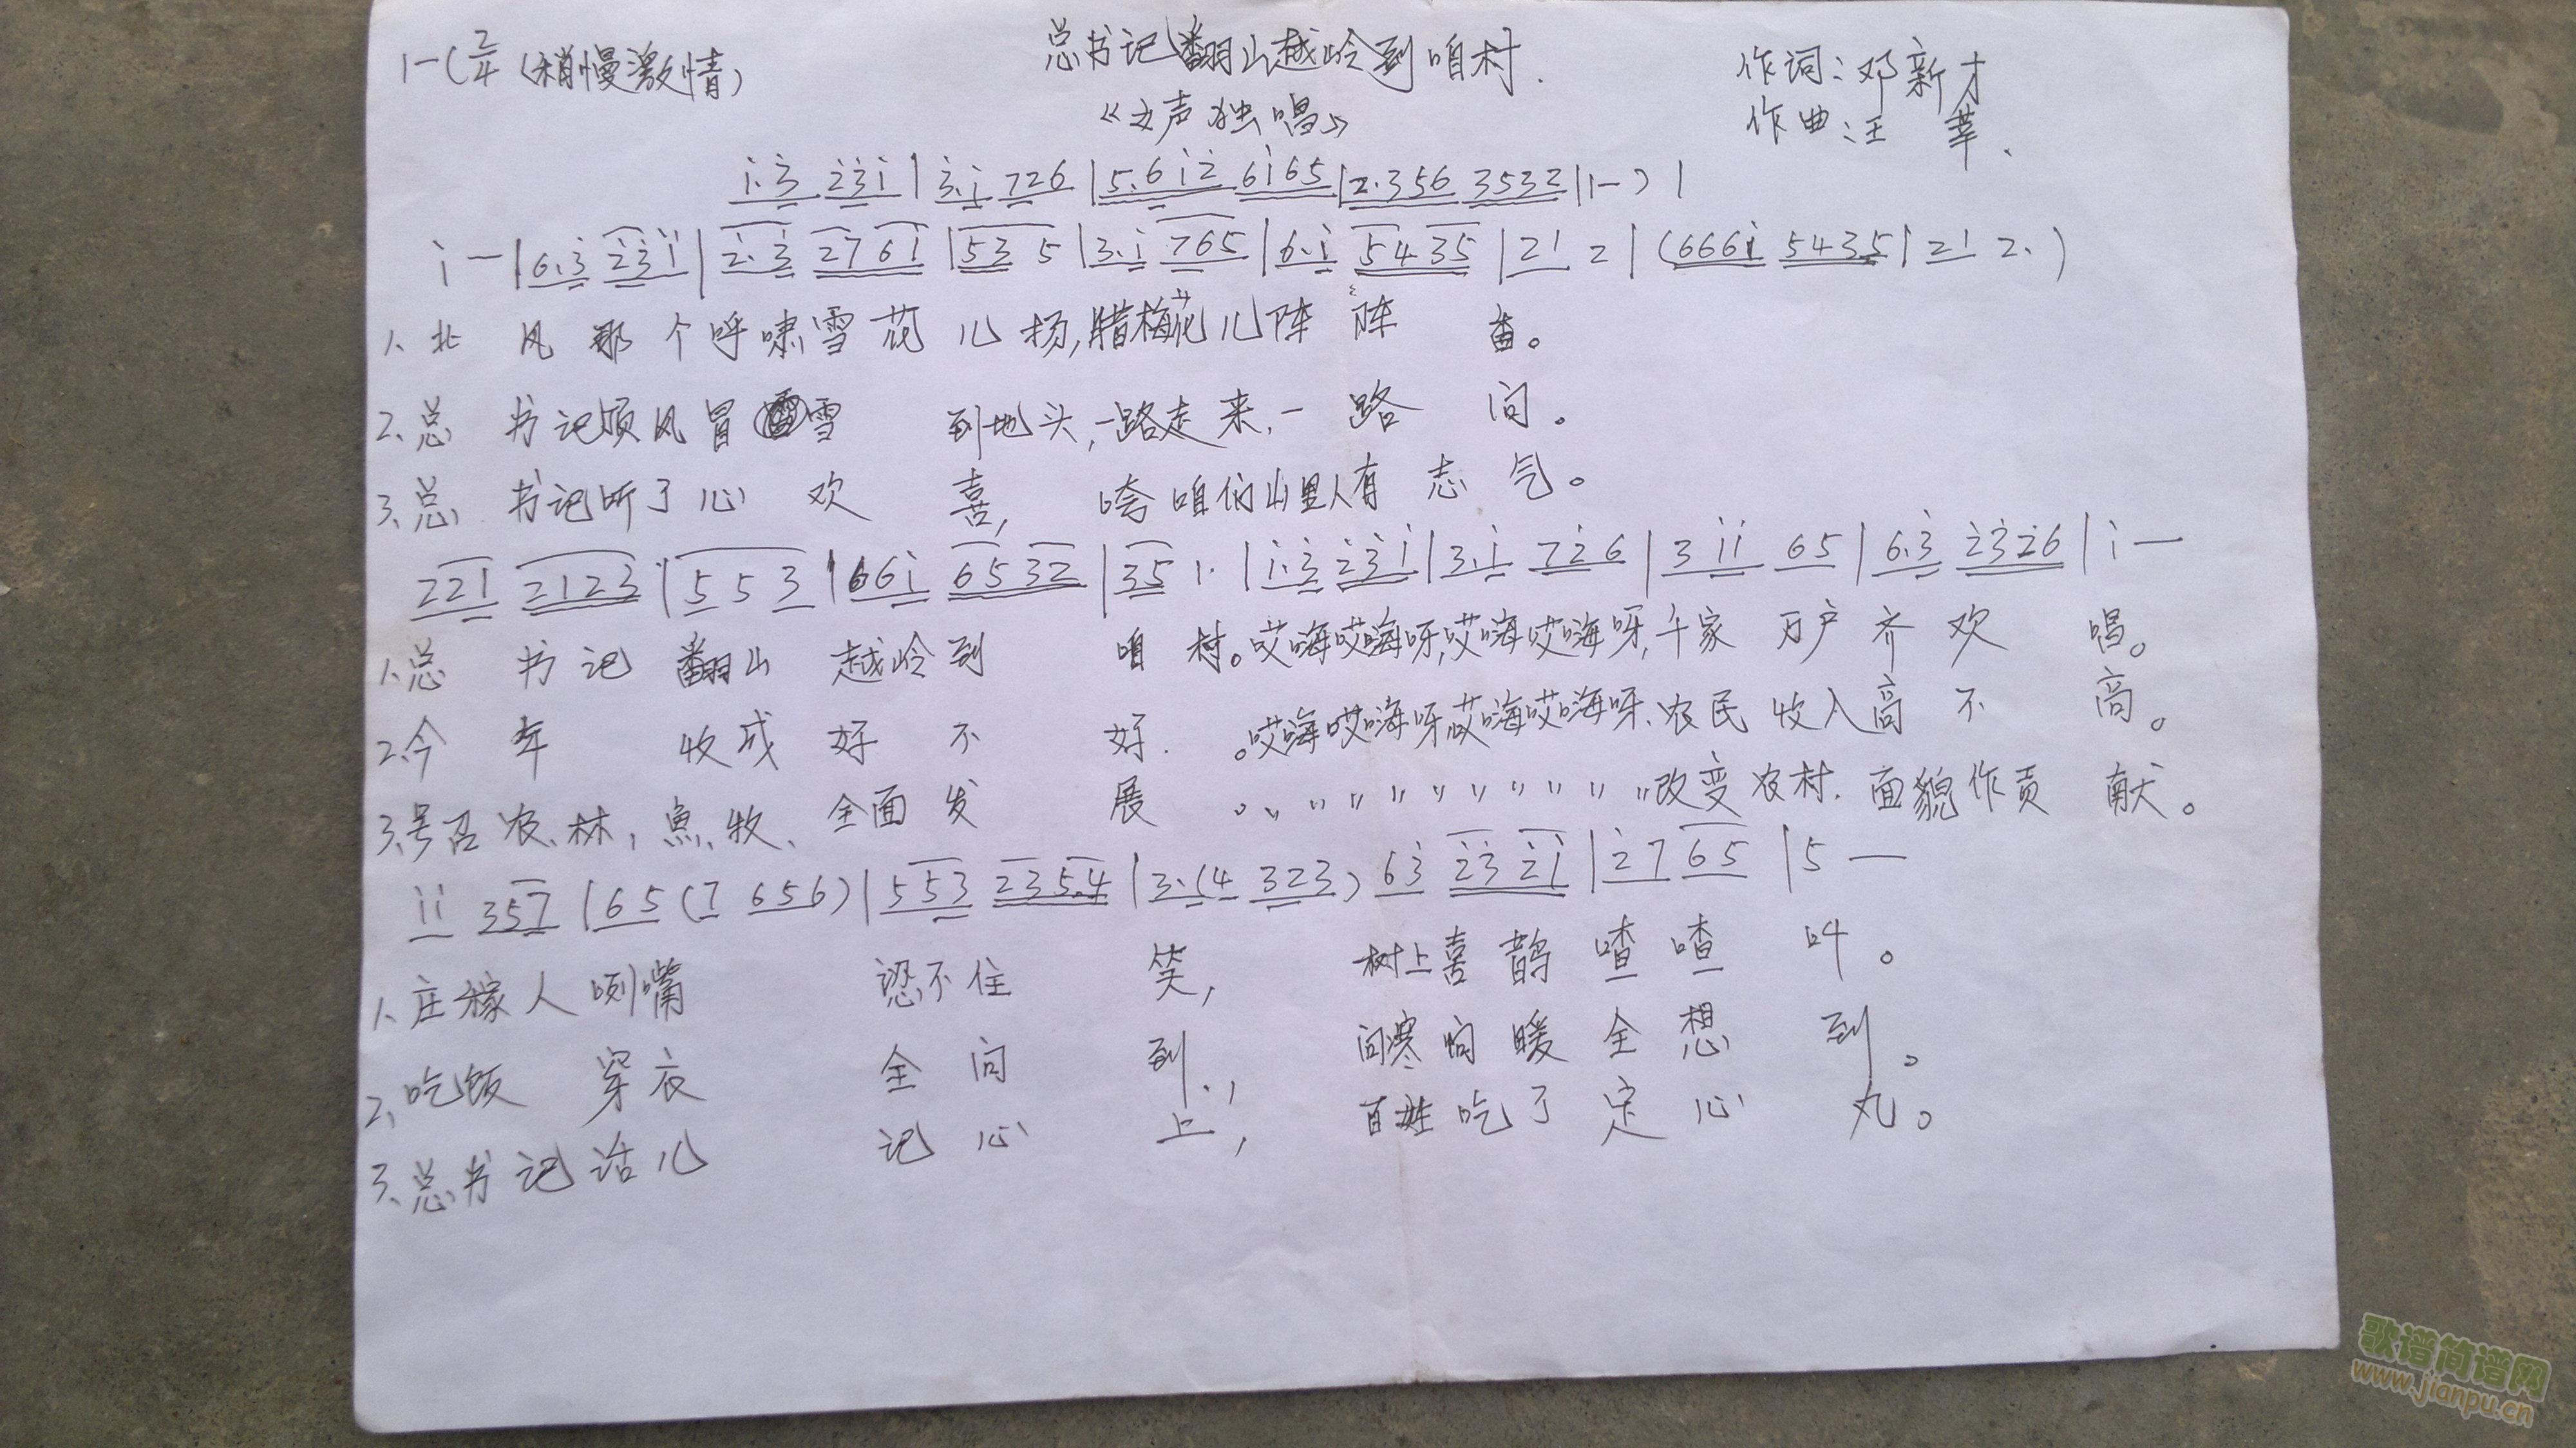 1=C 2/4 (稍慢激情)
总书记翻山越岭到咱村.
作词:邓新才
《女声独唱》
作曲:王莘、
i.3̇ 2̇3̇i | 3̇.i 72̇6 | 5.6i2̇ 6i65 | 2.356 3532 | 1-) |
i - | 6.3̇ 2̇3̇i | 2̇.3̇ 2̇76i | 53 5 | 3.i 765 | 6.i 5435 | 21 2 | (666i 5435 | 21 2.)
1、北风那个呼啸雪花儿扬,腊梅花儿阵阵香。
2、总书记顶风冒雪到地头,一路走来,一路问。
3、总书记听了心欢喜,夸咱们山里人有志气。
221 2123 | 5 5 3 | 66i 6532 | 35 1. | i.3̇ 2̇3̇i | 3̇.i 72̇6 | 3 ii 65 | 6.3̇ 2̇3̇2̇6 | i -
1、总书记翻山越岭到咱村。哎嗨哎嗨呀,哎嗨哎嗨呀,千家万户齐欢唱。
2、今年收成好不好.。哎嗨哎嗨呀哎嗨哎嗨呀、农民收入高不高。
3、号召农、林,魚、牧、全面发展。〃〃〃〃〃〃〃〃〃〃改变农村.面貌作贡献。
ii 357 | 65(7 656) | 553 235.4 | 3.(4 323) 63̇ 2̇3̇2̇i | 2̇7 65 | 5 —
1、庄稼人咧嘴忍不住笑,树上喜鹊喳喳叫。
2、吃饭穿衣全问到.,问寒问暖全想到。
3、总书记话儿记心上,百姓吃了定心丸。
歌谱简谱网
www.jianpu.cn